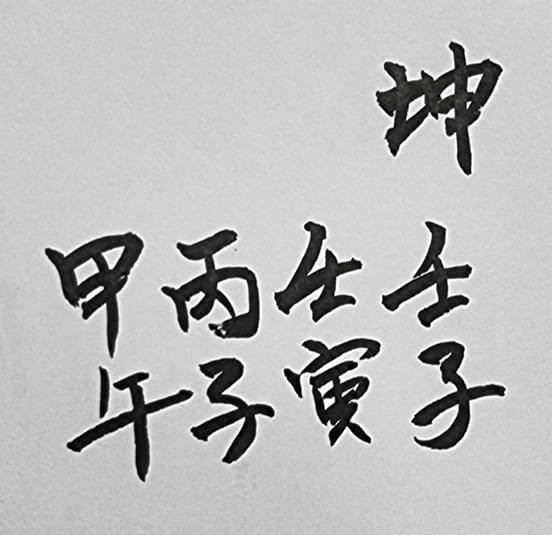 坤
壬子
壬寅
丙子
甲午